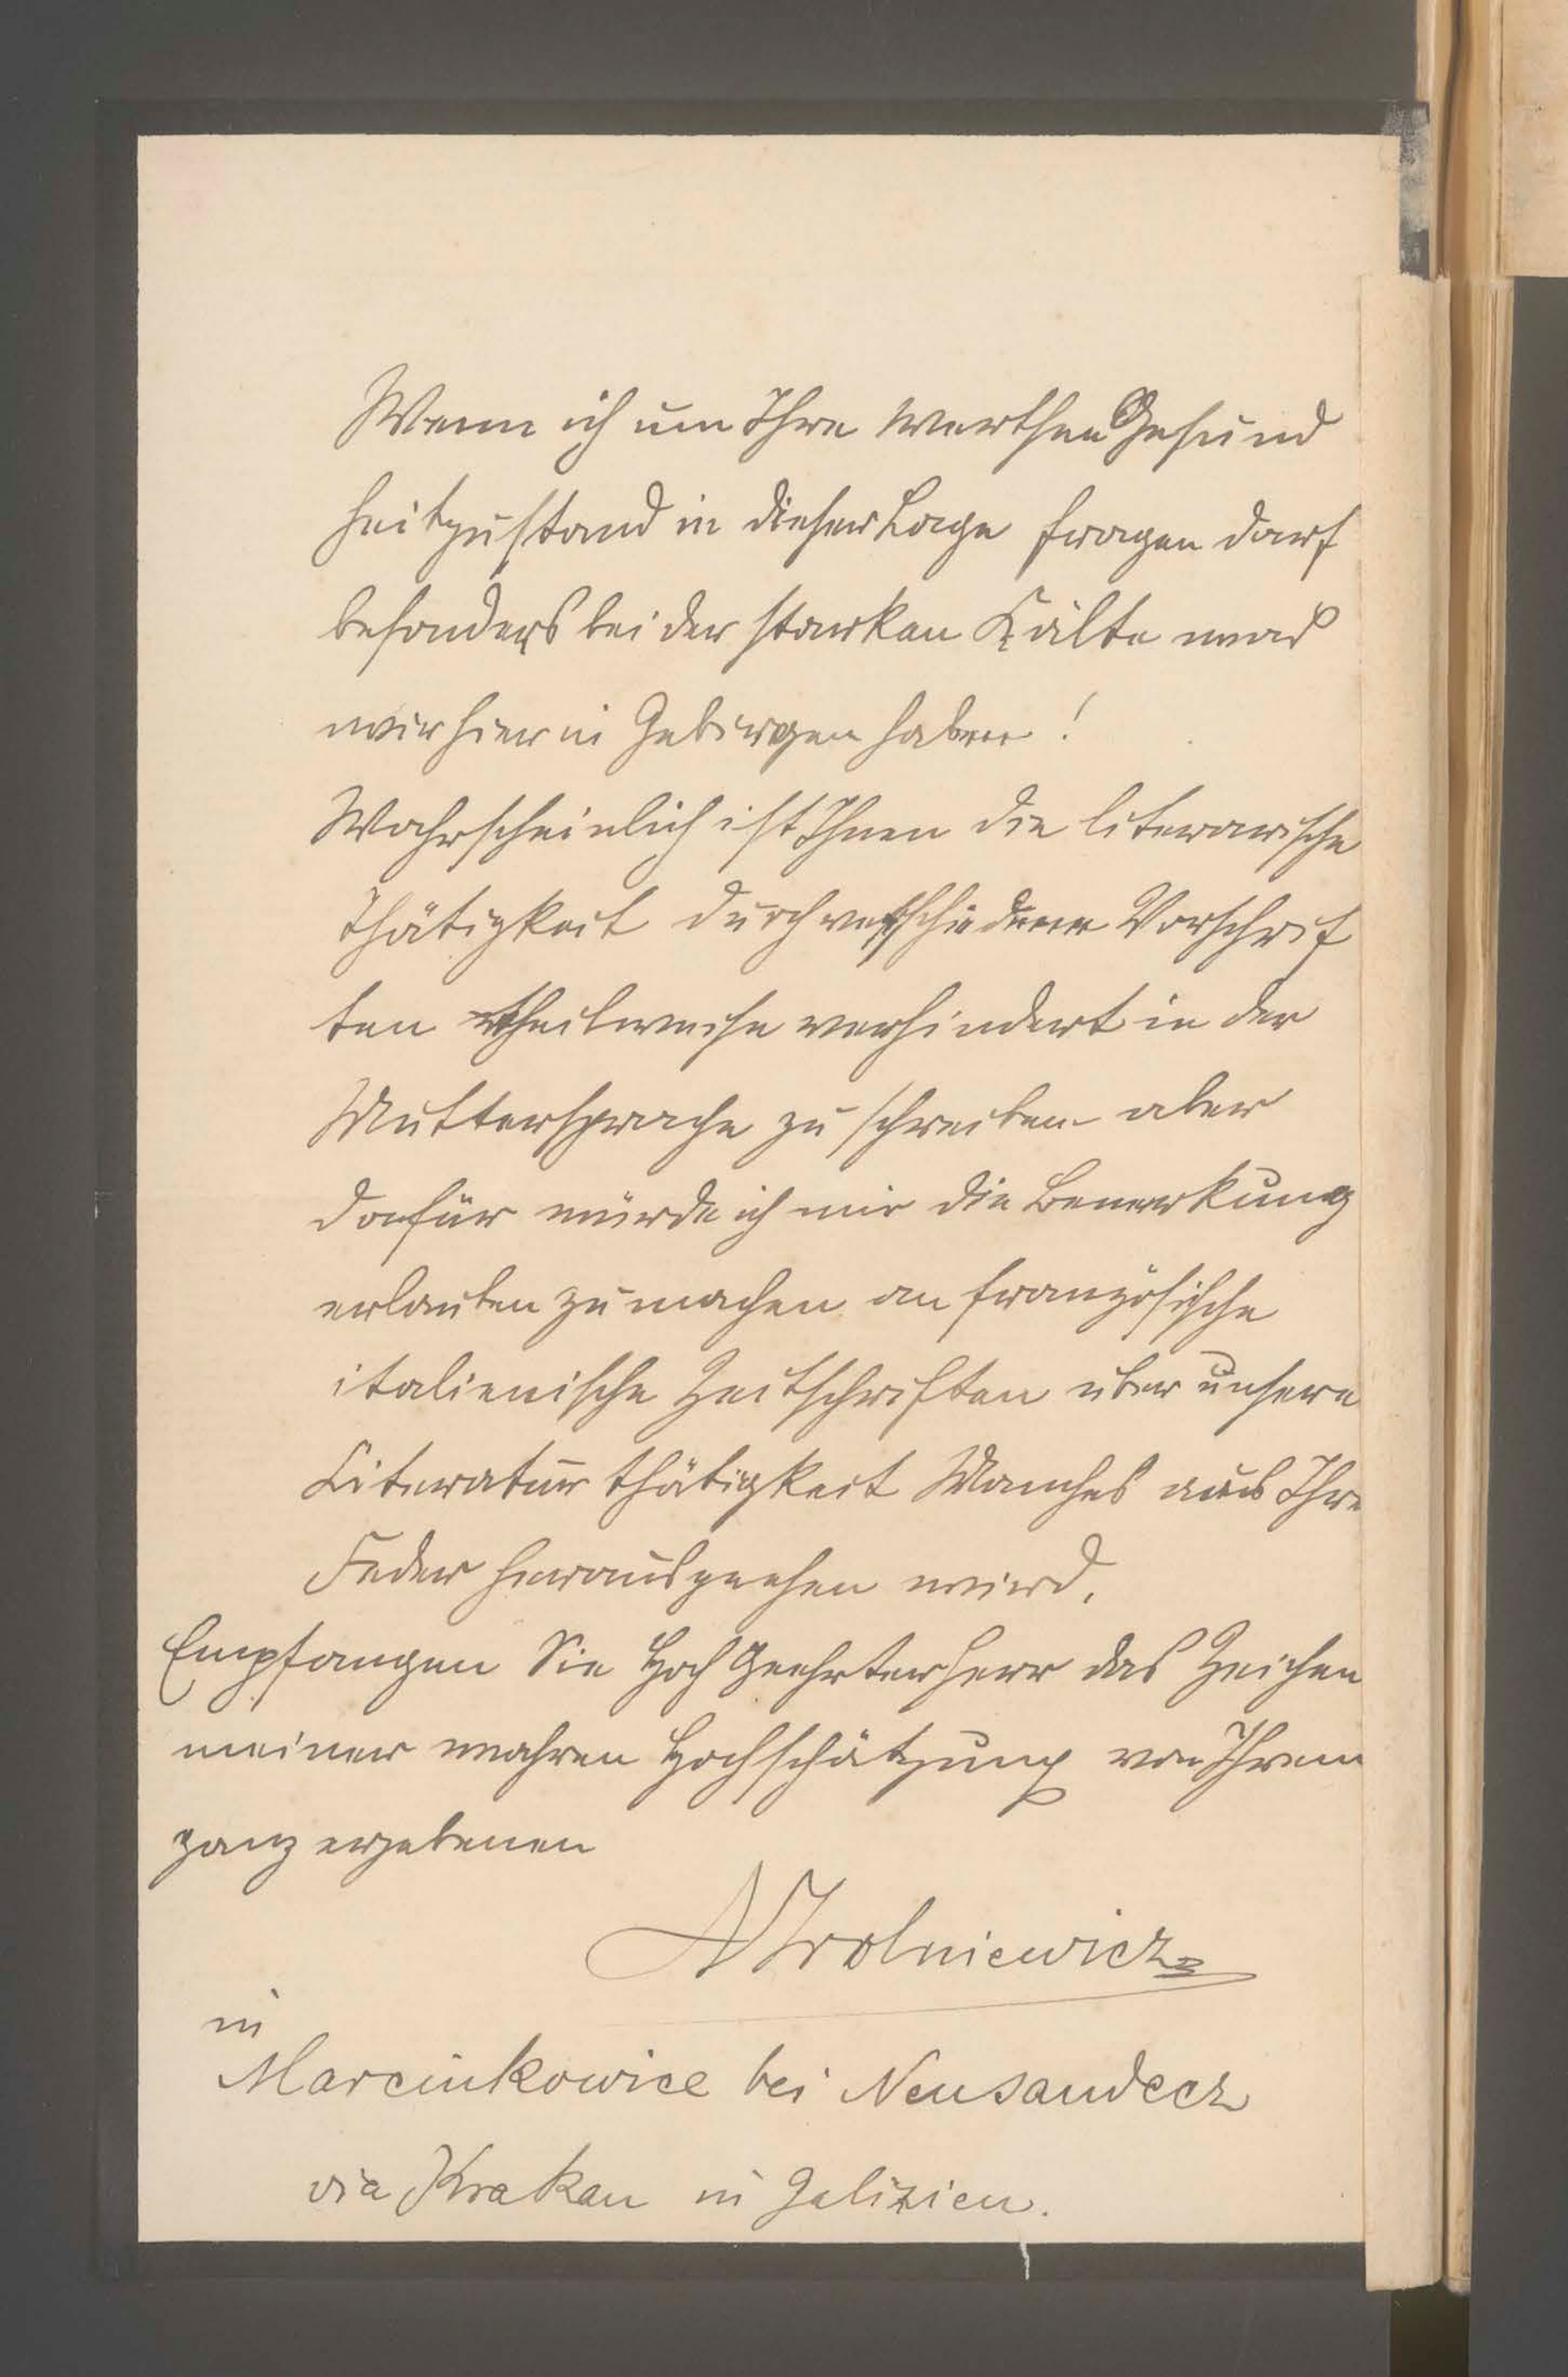 Wenn ich um Ihren werthen Gesund
heitzustand in dieser Lage fragen darf
besonders bei der starken Kälte was
wir hier in Gebirgen haben!
Wahrscheinlich ist Ihnen die literarische
Thätigkeit durch verschiedene Vorschrif
ten theilweise verhindert in der
Muttersprache zu schreiben aber
dafür würde ich mir die Bemerkung
erlauben zu machen an französische
italienische Zeitschriften über unsere
Literatur thätigkeit Manches aus Ihre
Feder herausgehen wird.
Empfangen Sie Hoch Geehrter Herr das Zeichen
meiner wahren Hochschätzung von Ihrem
ganz ergebenen
in
Marcinkowice bei Neusandecz
via Krakau in Galizien.